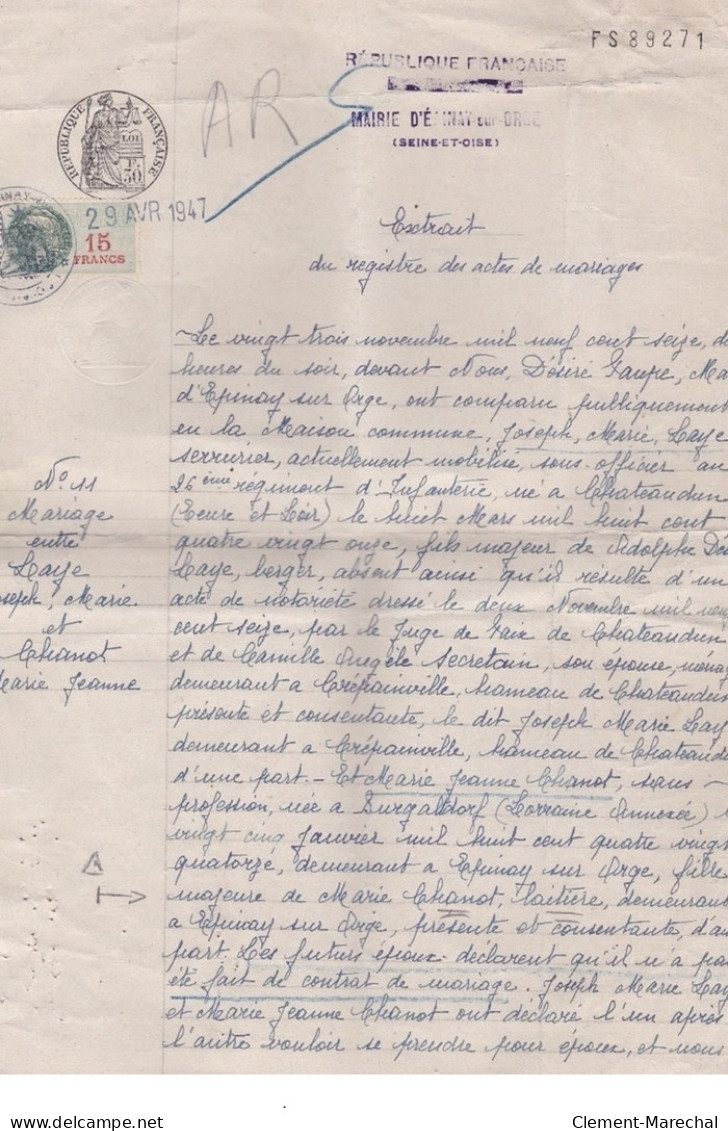 FS89271
RÉPUBLIQUE FRANÇAISE
MAIRIE D'ÉPINAY-sur-ORGE
(SEINE-ET-OISE)
AR
RÉPUBLIQUE FRANÇAISE
LOI
29 AVR 1947
15
FRANCS
Extrait
du registre des actes de mariages
Le vingt trois novembre mil neuf cent seize, d
heures du soir, devant Nous, Désiré Ma
d'Epinay sur Orge, ont comparu publiquement
en la Maison commune, Joseph, Marie, Laye
serrurier, actuellement mobilisé, sous-officier au
26ème régiment d'Infanterie, né a Chateaudun
(Eeure et Loir) le huit Mars mil huit cent
quatre vingt onze, fils majeur de Adolphe Dé
Laye, berger, absent ainsi qu'il résulte d'un
acte de notoriété dressé le deux Novembre mil neu
cent seize, par le Juge de Paix de Chateaudun
et de Camille Angèle Secretain, son épouse, ménag
demeurant a Crépainville, hameau de Chateaudun
présente et consentante, le dit Joseph Marie Lay
demeurant a Crépainville, hameau de Chateaudu
d'une part. - Et Marie Jeanne Chanot, sans -
profession, née a (Lorraine Annexée)
vingt cinq Janvier mil huit cent quatre vingt
quatorze, demeurant a Epinay sur Orge, fille
majeure de Marie Chanot, laitière, demeurant
a Epinay sur Orge, présente et consentante, d'au
part. Les futurs époux déclarent qu'il n'a pa
été fait de contrat de mariage. Joseph Marie Lay
et Marie Jeanne Chanot ont déclaré l'un après
l'autre vouloir se prendre pour époux, et nous
No 11
Mariage
entre
Laye
oseph, Marie
et
Chanot
Marie Jeanne
A
Clement-Marechal